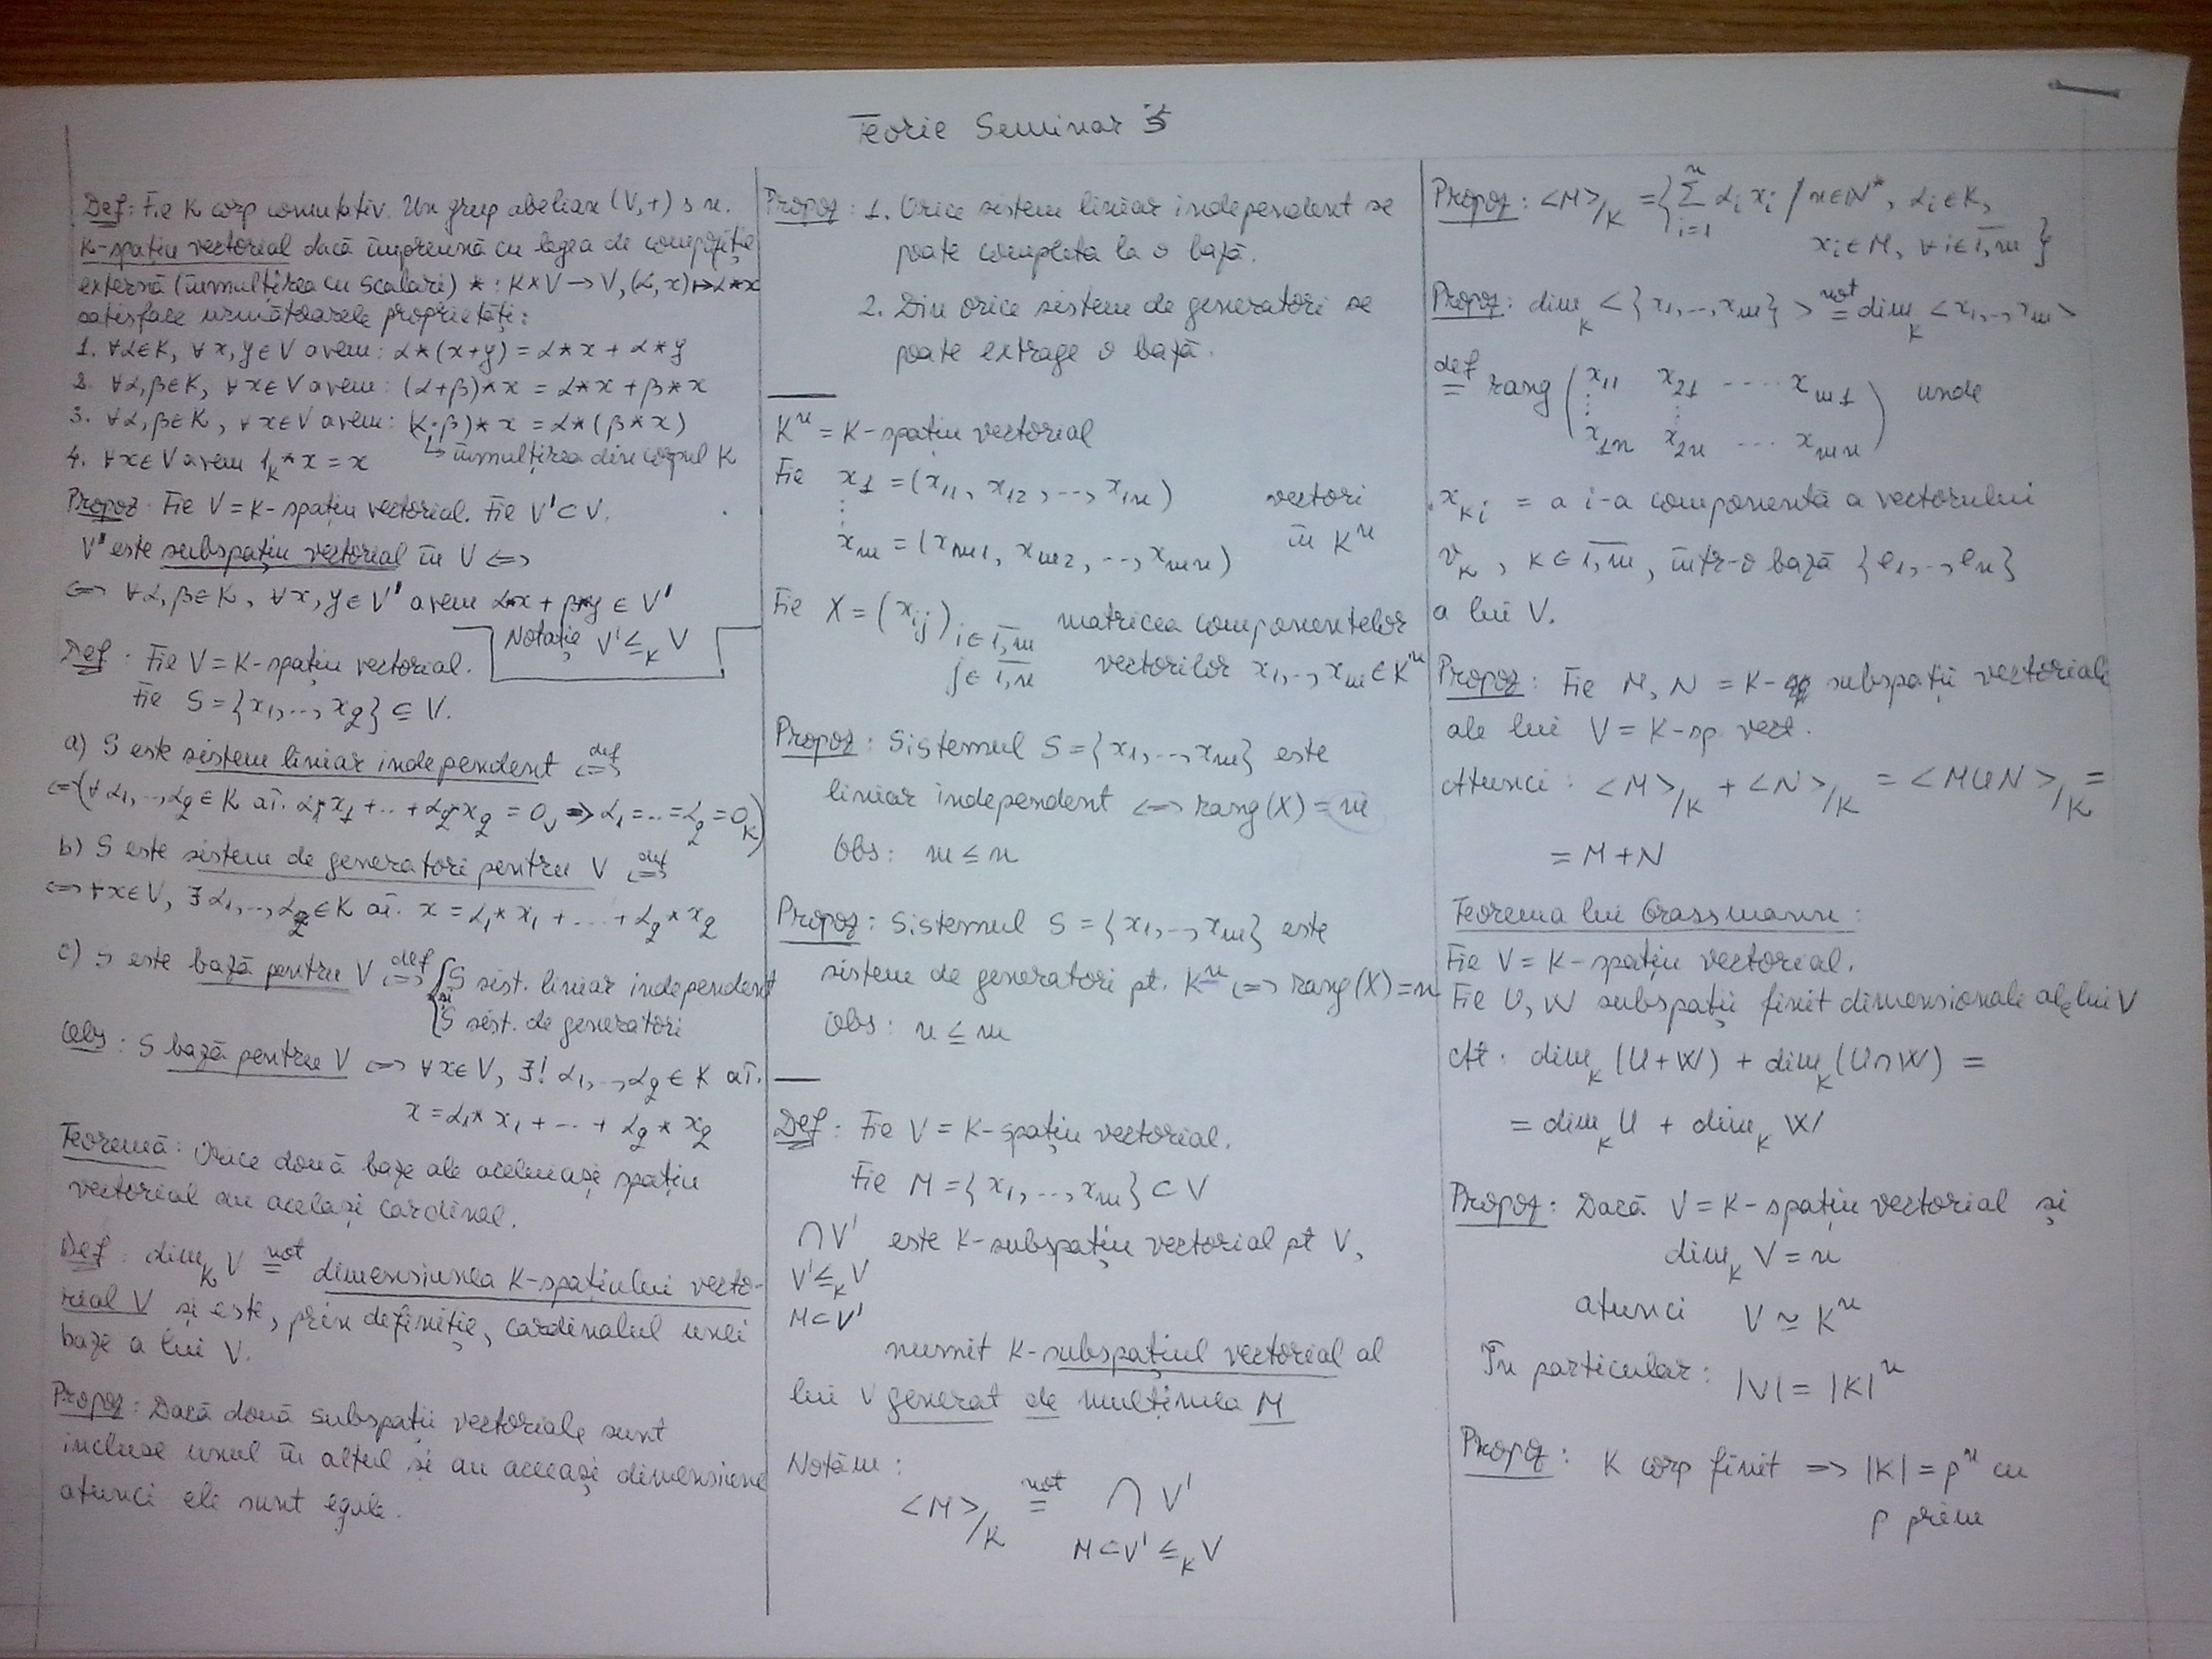 Teorie Seminar 5
Def: Fie K corp comutativ. Un grup abelian (V,+) s.n.
K-spațiu vectorial dacă împreună cu legea de compoziție
externă (înmulțirea cu scalari) * : K×V → V, (α,x) ↦ α*x
satisface următoarele proprietăți:
1. ∀α∈K, ∀x,y∈V avem: α*(x+y) = α*x + α*y
2. ∀α,β∈K, ∀x∈V avem: (α+β)*x = α*x + β*x
3. ∀α,β∈K, ∀x∈V avem: (α·β)*x = α*(β*x)
4. ∀x∈V avem 1_K*x = x ↳ înmulțirea din corpul K
Propoz: Fie V = K-spațiu vectorial. Fie V'⊂V.
V' este subspațiu vectorial în V ⇔
⇔ ∀α,β∈K, ∀x,y∈V' avem α*x + β*y ∈ V'
Notație V' ≤_K V
Def: Fie V = K-spațiu vectorial.
Fie S = {x₁,...,x_q} ⊆ V.
a) S este sistem liniar independent ⇔ def
⇔ (∀α₁,..,α_q∈K aî. α₁*x₁+..+α_q*x_q = 0_V ⇒ α₁=..=α_q=0_K)
b) S este sistem de generatori pentru V ⇔ def
⇔ ∀x∈V, ∃α₁,..,α_q∈K aî. x = α₁*x₁ + ... + α_q*x_q
c) S este bază pentru V ⇔ def { S sist. liniar independent
și
S sist. de generatori
Obs: S bază pentru V ⇔ ∀x∈V, ∃! α₁,..,α_q∈K aî.
x = α₁*x₁ + ... + α_q*x_q
Teoremă: Orice două baze ale aceluiași spațiu
vectorial au același cardinal.
Def: dim_K V not= dimensiunea K-spațiului vecto-
rial V și este, prin definiție, cardinalul unei
baze a lui V.
Propoz: Dacă două subspații vectoriale sunt
incluse unul în altul și au aceeași dimensiune
atunci ele sunt egale.
Propoz: 1. Orice sistem liniar independent se
poate completa la o bază.
2. Din orice sistem de generatori se
poate extrage o bază.
Kⁿ = K-spațiu vectorial
Fie x₁ = (x₁₁, x₁₂, .., x₁ₙ) vectori
⋮
x_m = (x_m1, x_m2, .., x_mn) în Kⁿ
Fie X = (x_ij) i∈1,m matricea componentelor
j∈1,n vectorilor x₁,..,x_m∈Kⁿ
Propoz: Sistemul S = {x₁,..,x_m} este
liniar independent ⇔ rang(X) = m
Obs: m ≤ n
Propoz: Sistemul S = {x₁,..,x_m} este
sistem de generatori pt. Kⁿ ⇔ rang(X) = n
Obs: n ≤ m
Def: Fie V = K-spațiu vectorial.
Fie M = {x₁,...,x_m} ⊂ V
∩V' este K-subspațiu vectorial pt V,
V' ≤_K V
M⊂V'
numit K-subspațiul vectorial al
lui V generat de mulțimea M
Notăm:
<M>/K not= ∩ V'
M⊂V' ≤_K V
Propoz: <M>/K = {∑_{i=1}^{n} α_i x_i / n∈N*, α_i∈K,
x_i∈M, ∀i∈1,n}
Propoz: dim_K <{x₁,..,x_m}> not= dim_K <x₁,..,x_m>
def= rang ( x₁₁ x₂₁ .... x_m1 ) unde
⋮ ⋮
x₁ₙ x₂ₙ ... x_mn
x_ki = a i-a componentă a vectorului
v_k, k∈1,m, într-o bază {e₁,..,e_n}
a lui V.
Propoz: Fie M, N = K-subspații vectoriale
ale lui V = K-sp vect.
Atunci: <M>/K + <N>/K = <M∪N>/K =
= M+N
Teorema lui Grassmann:
Fie V = K-spațiu vectorial.
Fie U, W subspații finit dimensionale ale lui V
At: dim_K(U+W) + dim_K(U∩W) =
= dim_K U + dim_K W
Propoz: Dacă V = K-spațiu vectorial și
dim_K V = n
atunci V ≃ Kⁿ
În particular: |V| = |K|ⁿ
Propoz: K corp finit ⇒ |K| = pⁿ cu
p prim